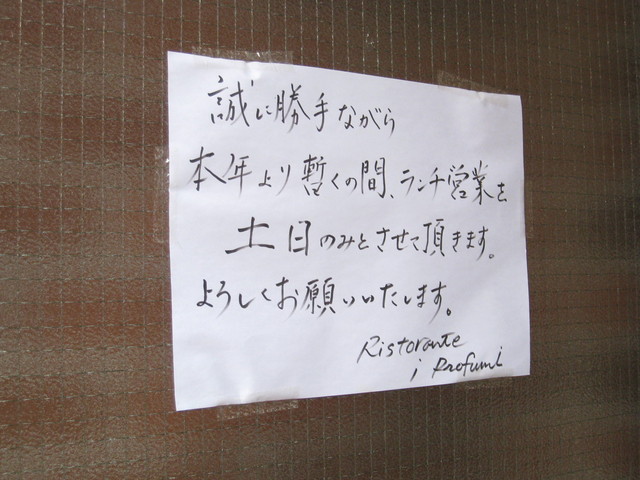 誠に勝手ながら
本年より暫くの間、ランチ営業を
土日のみとさせて頂きます。
よろしくお願いいたします。
Ristorante
i Profumi